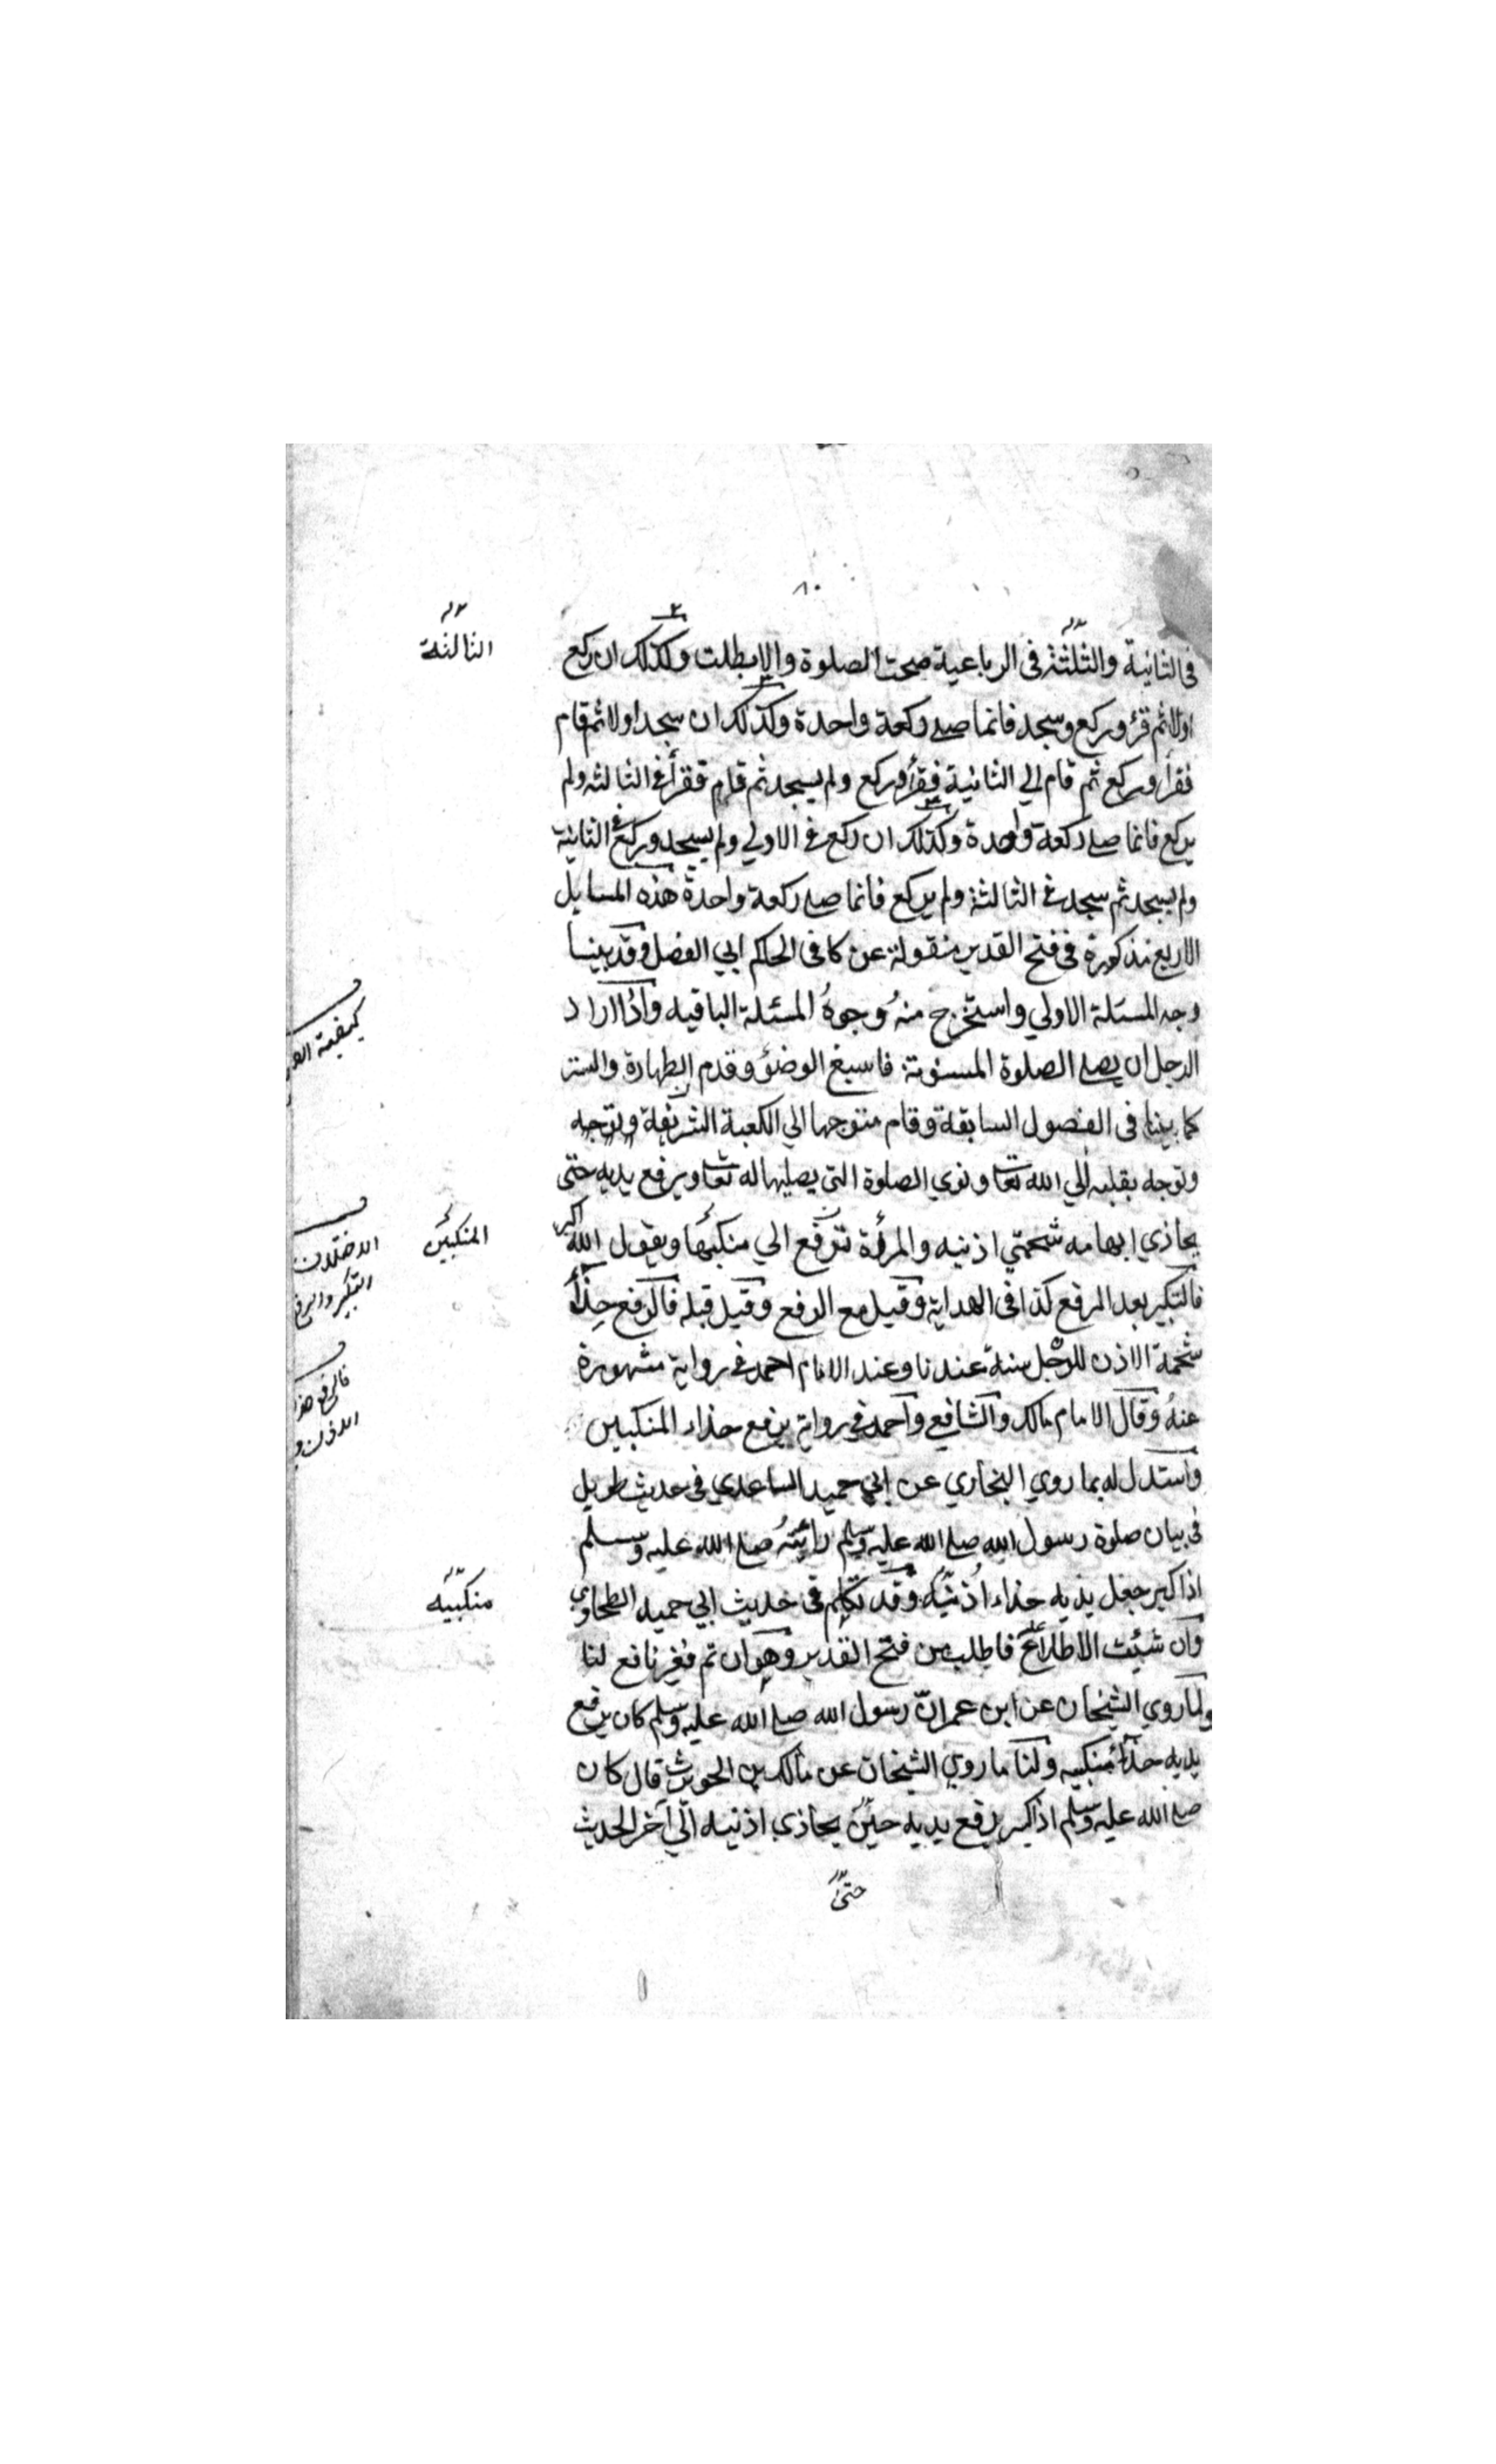 ٨٠
فى الثانية والثلثة فى الرباعية صحت الصلوة والا بطلت وكذلك ان ركع
اولا ثم قرأ وركع وسجد فانما صلى ركعة واحدة وكذلك ان سجد اولا ثم قام
فقرأ وركع ثم قام الي الثانية فقرأ وركع ولم يسجد ثم قام فقرأ فى الثالثه ولم
يركع فانما صلى ركعة واحدة وكذلك ان ركع فى الاولي ولم يسجد وركع فى الثانية
ولم يسجد ثم سجد فى الثالثة ولم يركع فانما صلى ركعة واحدة هذه المسايل
الاربع مذكورة فى فتح القدير منقولة عن كافى الحاكم ابي الفضل وقد بينا
وجه المسئلة الاولي واستخرج منه وجوه المسئلة الباقيه واذا اراد
الرجل ان يصلى الصلوة المسنونة فاسبغ الوضؤ وقدم الطهارة والستر
كما بينا فى الفصول السابقة وقام متوجها الي الكعبة الشريفة وتوجه
وتوجه بقلبه الي الله تعا ونوي الصلوة التى يصليها له تعا ويرفع يديه حتى
يحاذي ابهامه شحمتي اذنيه والمرأة ترفع الي منكبها ويقول الله اكبر
فالتكبير بعد الرفع كذا فى الهداية وقيل مع الرفع وقيل قبله فالرفع حذأ
شحمة الاذن للرجل سنة عندنا وعند الامام احمد فى رواية مشهورة
عنه وقال الامام مالك والشافعي واحمد فى رواية يرفع حذاء المنكبين
واستدل له بما روي البخاري عن ابي حميد الساعدي فى حديث طويل
فى بيان صلوة رسول الله صلى الله عليه وسلم رايته صلى الله عليه وسلم
اذا كبر جعل يديه حذاء اذنيه وقد تكلم فى حديث ابي حميد الطحاوي
وان شئت الاطلاع فاطلب من فتح القدير وهو ان تم فغير نافع لنا
ولما روي الشيخان عن ابن عمر ان رسول الله صلى الله عليه وسلم كان يرفع
يديه حذأ منكبيه ولنا ما روي الشيخان عن مالك بن الحويرث قال كان
صلى الله عليه وسلم اذا كبر يرفع يديه حين يحاذي اذنيه الي آخر الحديث
حتى
الثالثة
كيفية
المنكبين
الاختلاف
التكبير والرفع
فالرفع
منكبيه